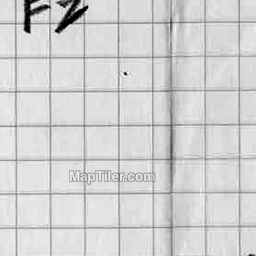 FZ
MapTiler.com